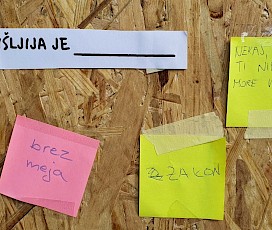 ŠLJIJA JE
NEKAJ,
TI NI
MORE
brez
meja
ZAKON